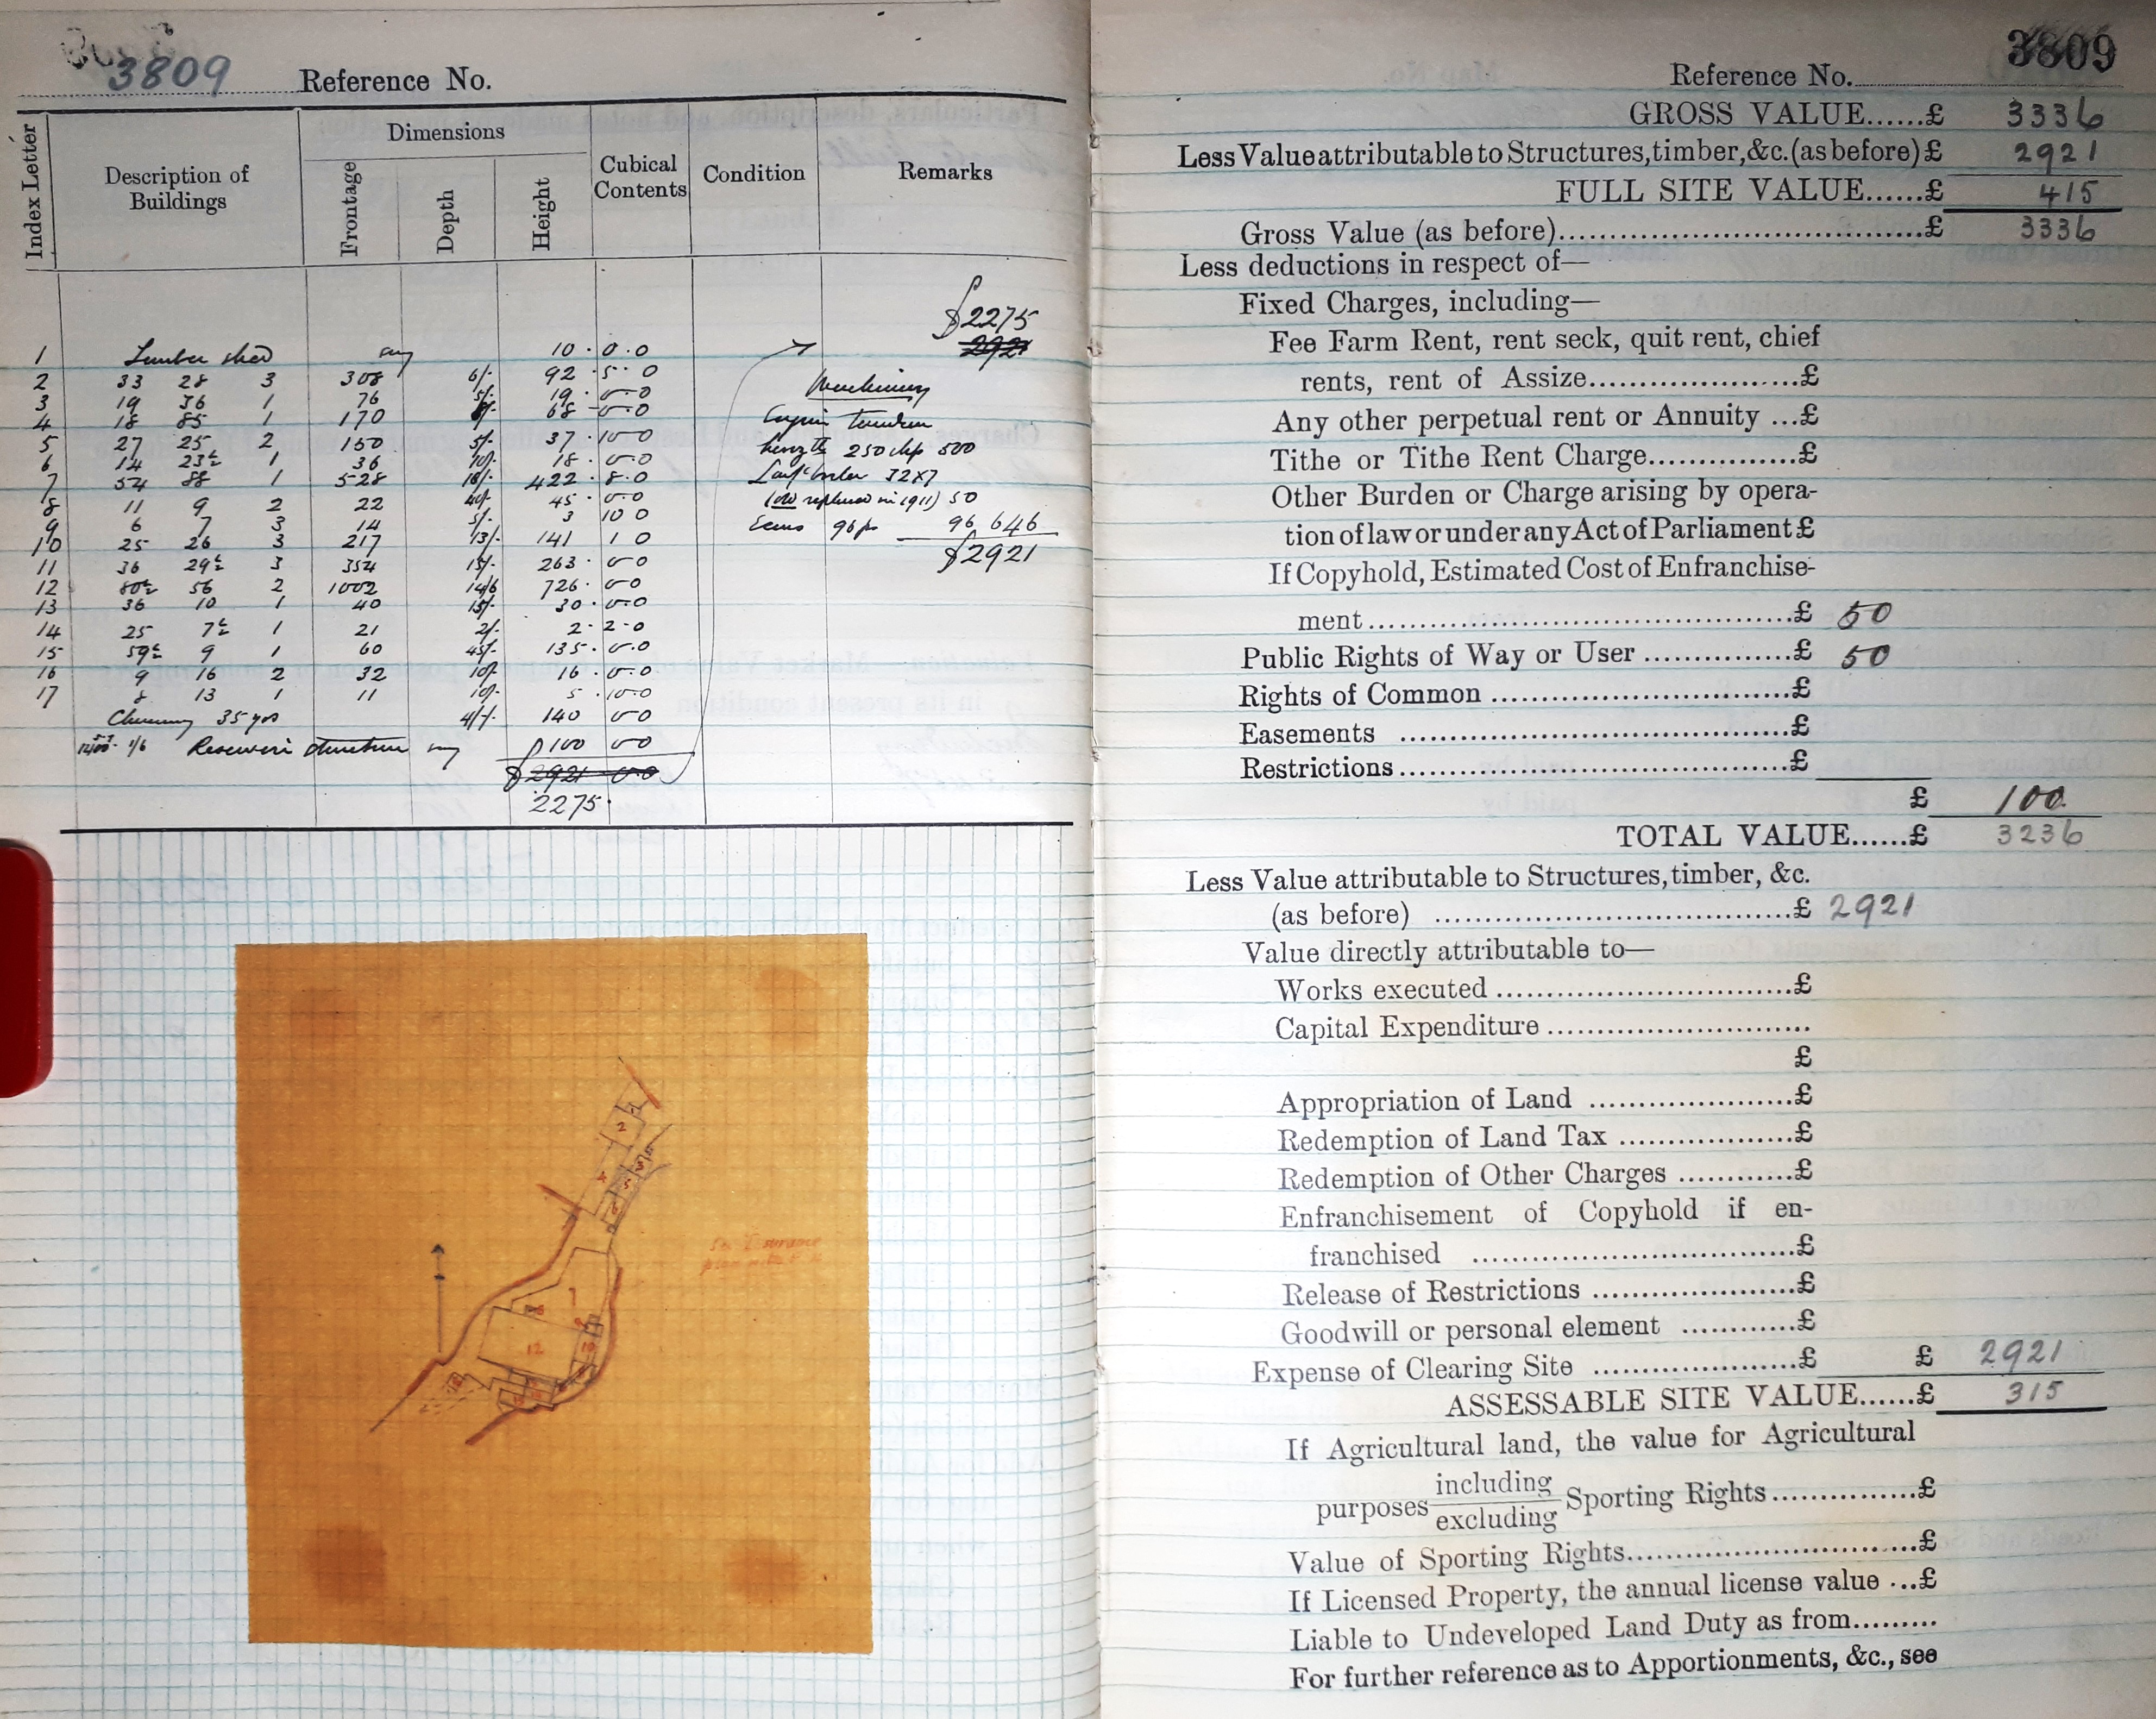 3809 Reference No.
Index Letter
Description of Buildings
Dimensions
Frontage
Depth
Height
Cubical Contents
Condition
Remarks
£2275
2921
1 Lumber shed say 10 . 0 . 0
2 33 28 3 308 6/- 92 . 5 . 0
3 19 36 1 76 5/- 19 . 0 . 0
4 18 85 1 170 68 0 . 0
5 27 25 2 150 5/- 37 . 10 0
6 14 23½ 1 36 10/- 18 . 0 . 0
7 54 88 1 528 16/- 422 . 8 . 0
8 11 9 2 22 40/- 45 . 0 0
9 6 7 3 14 5/- 3 10 0
10 25 26 3 217 13/- 141 1 0
11 36 29½ 3 354 15/- 263 . 0 0
12 80½ 56 2 1002 14/6 726 . 0 0
13 36 10 1 40 15/- 30 . 0 . 0
14 25 7½ 1 21 2/- 2 . 2 . 0
15 59½ 9 1 60 45/- 135 . 0 . 0
16 9 16 2 32 10/- 16 . 0 . 0
17 8 13 1 11 10/- 5 . 10 . 0
Chimney 35 yds 4/-/- 140 0 0
1/6 Reservoir structure say £100 0 0
£2921 0 0
2275
Machinery
Engine Tandem
250 ihp 500
Lancs boiler 32 x 7
(old replaced in 1911) 50
96 646
£2921
2
4
5
7
12
See Insurance
plan
3809
Reference No.
GROSS VALUE......£ 3336
Less Value attributable to Structures, timber, &c. (as before) £ 2921
FULL SITE VALUE......£ 415
Gross Value (as before)......£ 3336
Less deductions in respect of—
Fixed Charges, including—
Fee Farm Rent, rent seck, quit rent, chief
rents, rent of Assize......£
Any other perpetual rent or Annuity ...£
Tithe or Tithe Rent Charge......£
Other Burden or Charge arising by opera-
tion of law or under any Act of Parliament £
If Copyhold, Estimated Cost of Enfranchise-
ment......£ 50
Public Rights of Way or User ......£ 50
Rights of Common ......£
Easements ......£
Restrictions......£
£ 100
TOTAL VALUE......£ 3236
Less Value attributable to Structures, timber, &c.
(as before) ......£ 2921
Value directly attributable to—
Works executed ......£
Capital Expenditure ......
£
Appropriation of Land ......£
Redemption of Land Tax ......£
Redemption of Other Charges ......£
Enfranchisement of Copyhold if en-
franchised ......£
Release of Restrictions ......£
Goodwill or personal element ......£
Expense of Clearing Site ......£ £ 2921
ASSESSABLE SITE VALUE......£ 315
If Agricultural land, the value for Agricultural
including
purposes Sporting Rights......£
excluding
Value of Sporting Rights......£
If Licensed Property, the annual license value ...£
Liable to Undeveloped Land Duty as from.........
For further reference as to Apportionments, &c., see